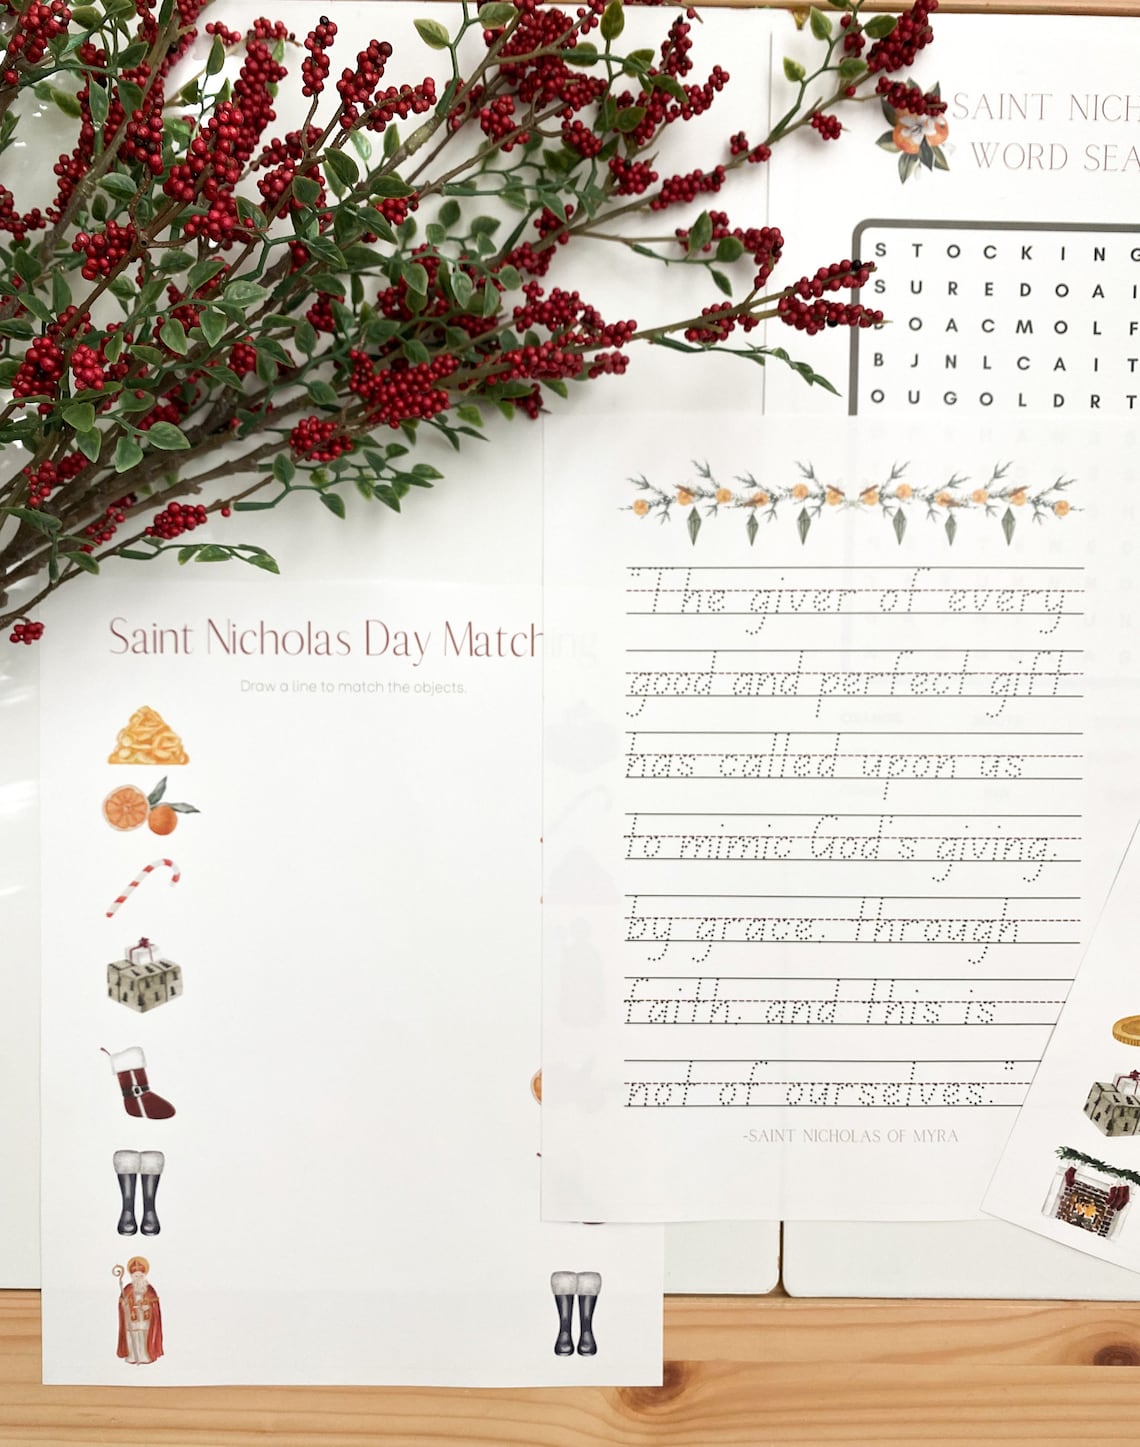 SAINT NICH
WORD SEA
STOCKING
SUREDOAI
OACMOLF
BJNLCAIT
OUGOLDRT
Saint Nicholas Day Matching
Draw a line to match the objects.
"The giver of every
good and perfect gift
has called upon us
to mimic God's giving,
by grace, through
faith, and this is
not of ourselves."
-SAINT NICHOLAS OF MYRA